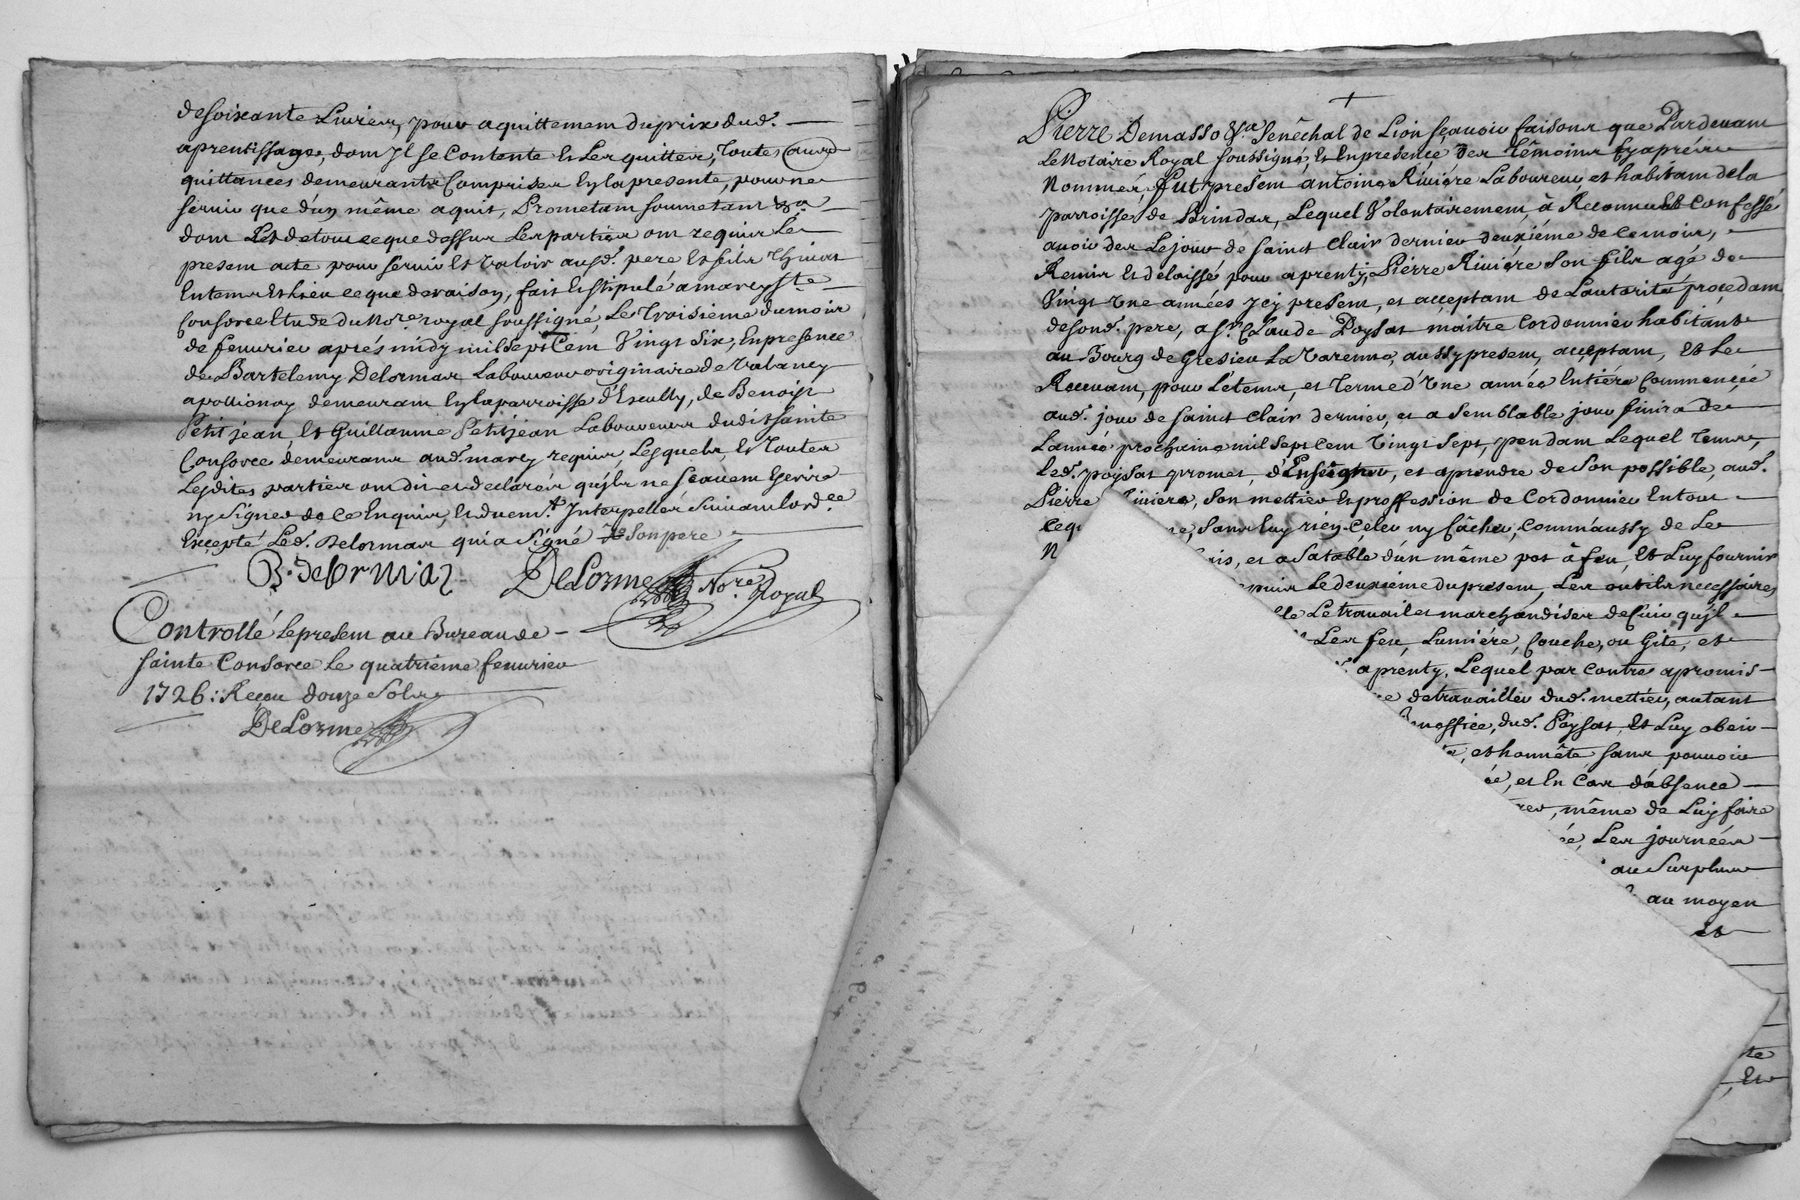 de soixante Livres, pour aquittement du prix dud.
aprentissage, dont Il se Contente Et Les quittes, Toutes autres
quittances demeurants Comprises En la presente, pour ne
servir que d'un même aquit, Prometant soumetant &a
dont Et de tout ce que dessus Les parties ont requis Le
present acte pour servir Et valoir ausd. pere Et fils
En tems Et lieu ce que de raison, fait Et stipulé a marcy Ste
Consorce Etude du Nore. royal soussigné, Le Troisieme du mois
de fevurier aprés midy mil sept Cent Vingt six, En presence
de Bartelemy Delormas Laboureur originaire de valancy
apollionay demeurant En la parroisse d'Escully, de Benoist
Petitjean, Et Guillaume Petitjean Laboureurs dudit sainte
Consorce demeurans aud. marcy requis Lesquels, Et Toutes
Lesdites parties ont dit et declarés qu'ils ne sçavent Escrire
ny signer de ce Enquis, Et duemt. Interpellés suivant lordce.
Excepté Led. Delormas qui a signé son pere
B. delormas DeLorme Nore. Royal
Controllé Le present au Bureau de
sainte Consorce le quatriéme fevurier
1726: Reçeu douze sols
DeLorme
Pierre Demasso &a Senêchal de Lion sçavoir faisons que Pardevant
Le Notaire Royal soussigné, Et En presence des têmoins Cy aprés
Nommés, fut present antoine Riviére Laboureur, et habitant de la
parroisse de Brindas, Lequel Volontairement, à Reconnu Et Confessé
avoir des Le jour de sainct Clair dernier deuxiéme de ce mois,
Remis Et delaissé pour aprenty, Pierre Riviére son fils agé de
Vingt Une années Icy present, et acceptant de L'autorité procedant
de sond. pere, a sr. Claude Poysat maitre Cordonnier habitant
au Bourg de Gresieu La Varenne, aussy present, acceptant, Et Le
Recevant, pour L'étems, et Terme d'Une année Entiére Commencée
aud. jour de sainct Clair dernier, et a semblable jour finira de
L'année prochaine mil sept Cent Vingt sept, pendant Lequel Tems,
Led. Poysat promet, d'Enseigner, et aprendre de son possible, aud.
Pierre Riviére, son mettier Et proffession de Cordonnier En tout
ce qu Sans Luy rien Celer ny Câcher, Comm'aussy de Le
N et a sa table d'un même pot à feu, Et Luy fournir
Le deuxieme du present, Les outils necessaires
Le travail et marchandises de Cuir qu'il
Les feu, Lumiére, Couche, ou Gite, et
aprenty, Lequel par Contre a promis
de travailler dud. mettier, autant
dud. Poysat, Et Luy obeir
, et honnête sans pouvoir
, et En Cas d'absence
, même de Luy faire
Les journées
au surplus
au moyen
et
te
, Et